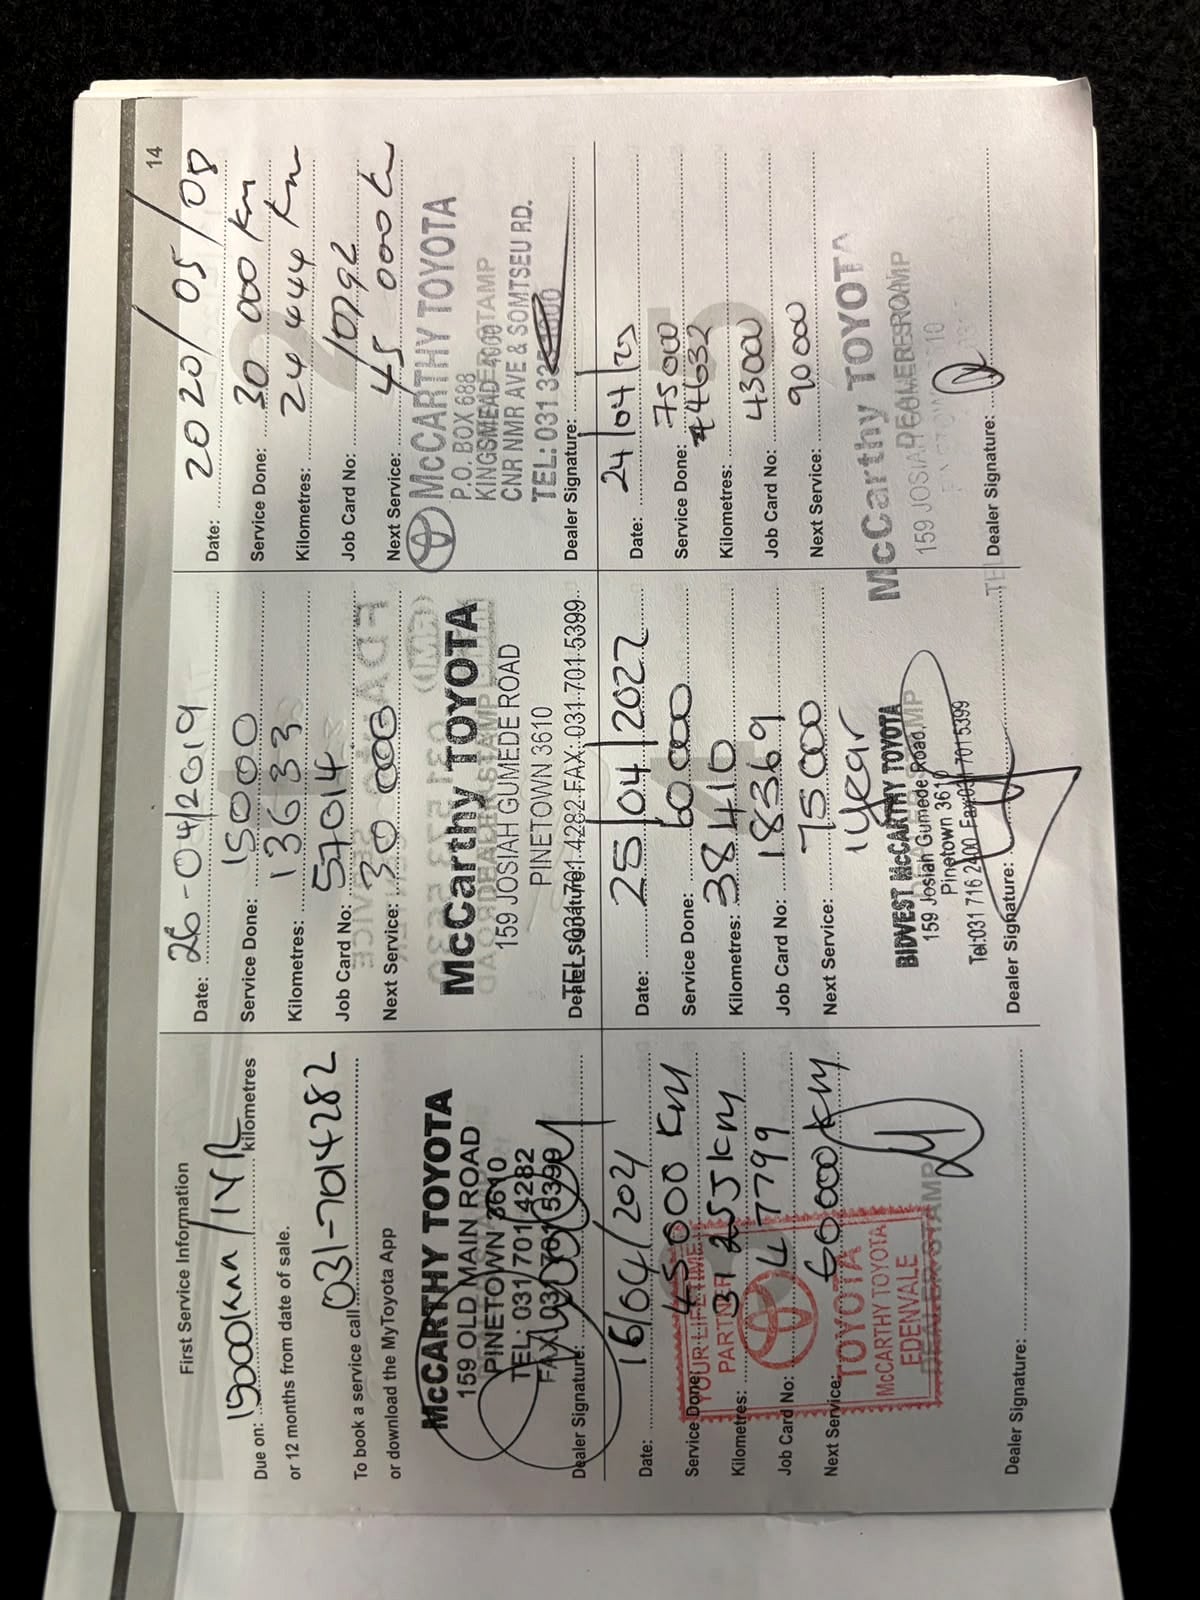 14
First Service Information
Due on: 15000km/1YR kilometres
or 12 months from date of sale.
To book a service call 031-7014282
or download the MyToyota App
McCARTHY TOYOTA
159 OLD MAIN ROAD
PINETOWN 3610
TEL: 031 701 4282
FAX: 031 701 5399
Dealer Signature:
Date: 26-04/2019
Service Done: 15000
Kilometres: 13633
Job Card No: 57014
Next Service: 30 000
McCarthy TOYOTA
159 JOSIAH GUMEDE ROAD
PINETOWN 3610
TEL: 031-701-4282 FAX: 031-701-5399
Dealer Signature:
Date: 2020/05/08
Service Done: 30 000 km
Kilometres: 24 444 km
Job Card No: 10792
Next Service: 45 000 km
McCARTHY TOYOTA
P.O. BOX 688
KINGSMEAD 4000
CNR NMR AVE & SOMTSEU RD.
TEL: 031 32
Dealer Signature:
Date: 16/04/2021
Service Done: 45000 KM
Kilometres: 31255 km
Job Card No: 47799
Next Service: 60000 KM
YOUR LIFETIME
PARTNER
TOYOTA
McCARTHY TOYOTA
EDENVALE
DEALER STAMP
Dealer Signature:
Date: 25/04/2022
Service Done: 60000
Kilometres: 38410
Job Card No: 18369
Next Service: 75000
1 Year
BIDVEST McCARTHY TOYOTA
159 Josiah Gumede Road,
Pinetown 3610
Tel:031 716 2400 Fax:031 701 5399
Dealer Signature:
Date: 24/04/23
Service Done: 75000
Kilometres: 44632
Job Card No: 43000
Next Service: 90000
McCarthy TOYOTA
159 JOSIAH
DEALER STAMP
Dealer Signature: